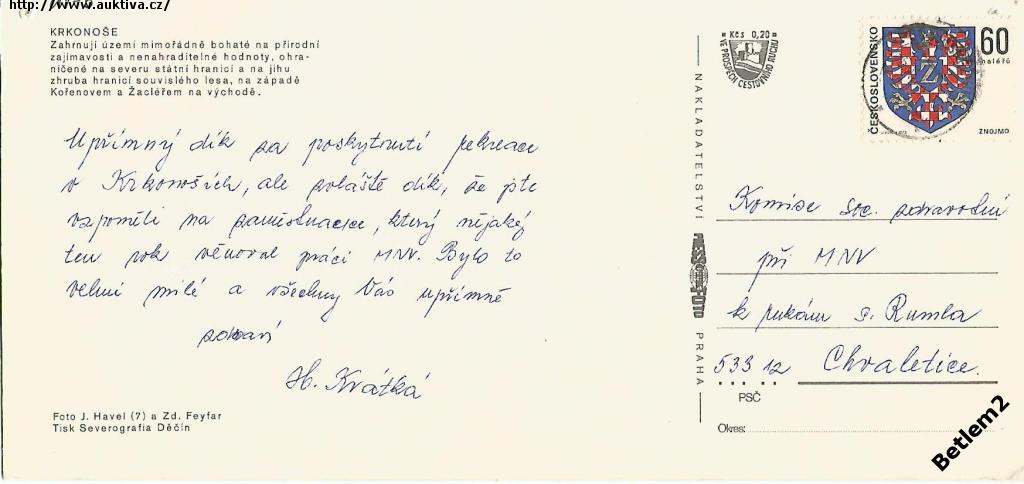 http://www.auktiva.cz/
KRKONOŠE
Zahrnují území mimořádně bohaté na přírodní
zajímavosti a nenahraditelné hodnoty, ohra-
ničené na severu státní hranicí a na jihu
zhruba hranicí souvislého lesa, na západě
Kořenovem a Žacléřem na východě.
Upřímný dík za poskytnutí rekreace
v Krkonoších, ale zvláště dík, že jste
vzpoměli na zaměstnance, který nějaký
ten rok věnoval práci MNV. Bylo to
velmi milé a všechny Vás upřímně
zdraví
H. Krátká
Foto J. Havel (7) a Zd. Feyfar
Tisk Severografia Děčín
NAKLADATELSTVÍ
PRESSFOTO
PRAHA
Kčs 0,20
VE PROSPĚCH CESTOVNÍHO RUCHU
ČESKOSLOVENSKO
60
haléřů
ZNOJMO
Komise soc. zdravotní
při MNV
k rukám s. Rumla
533 12 Chvaletice.
PSČ
Okres:
Betlem2